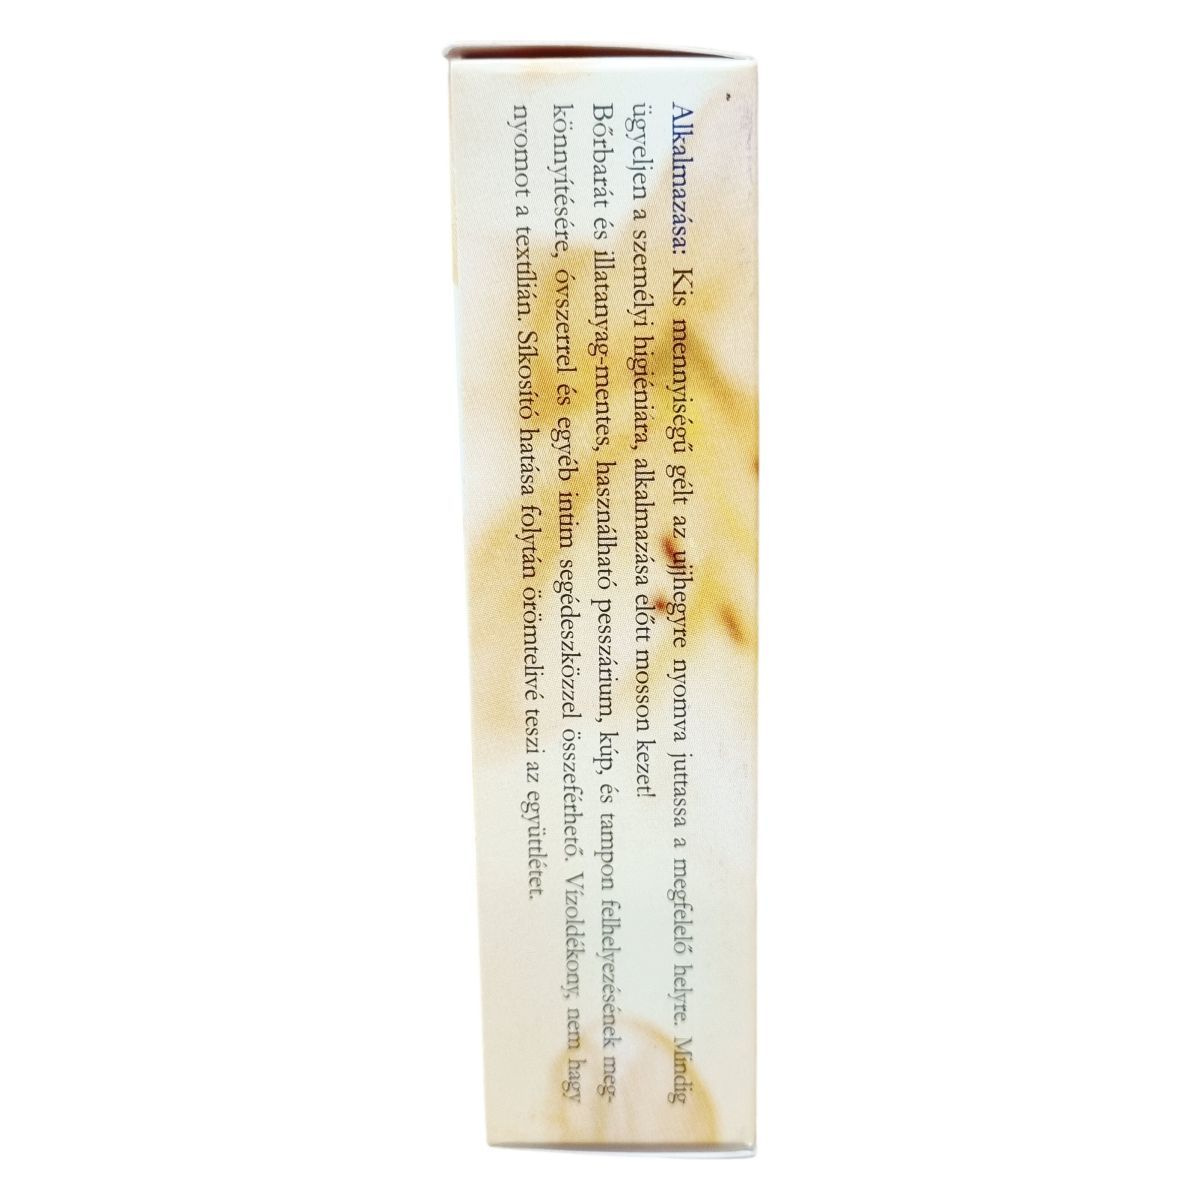 Alkalmazása: Kis mennyiségű gélt az ujjhegyre nyomva juttassa a megfelelő helyre. Mindig
ügyeljen a személyi higiéniára, alkalmazása előtt mosson kezet!
Bőrbarát és illatanyag-mentes, használható pesszárium, kúp, és tampon felhelyezésének meg-
könnyítésére, óvszerrel és egyéb intim segédeszközzel összeférhető. Vízoldékony, nem hagy
nyomot a textílián. Síkosító hatása folytán örömtelivé teszi az együttlétet.